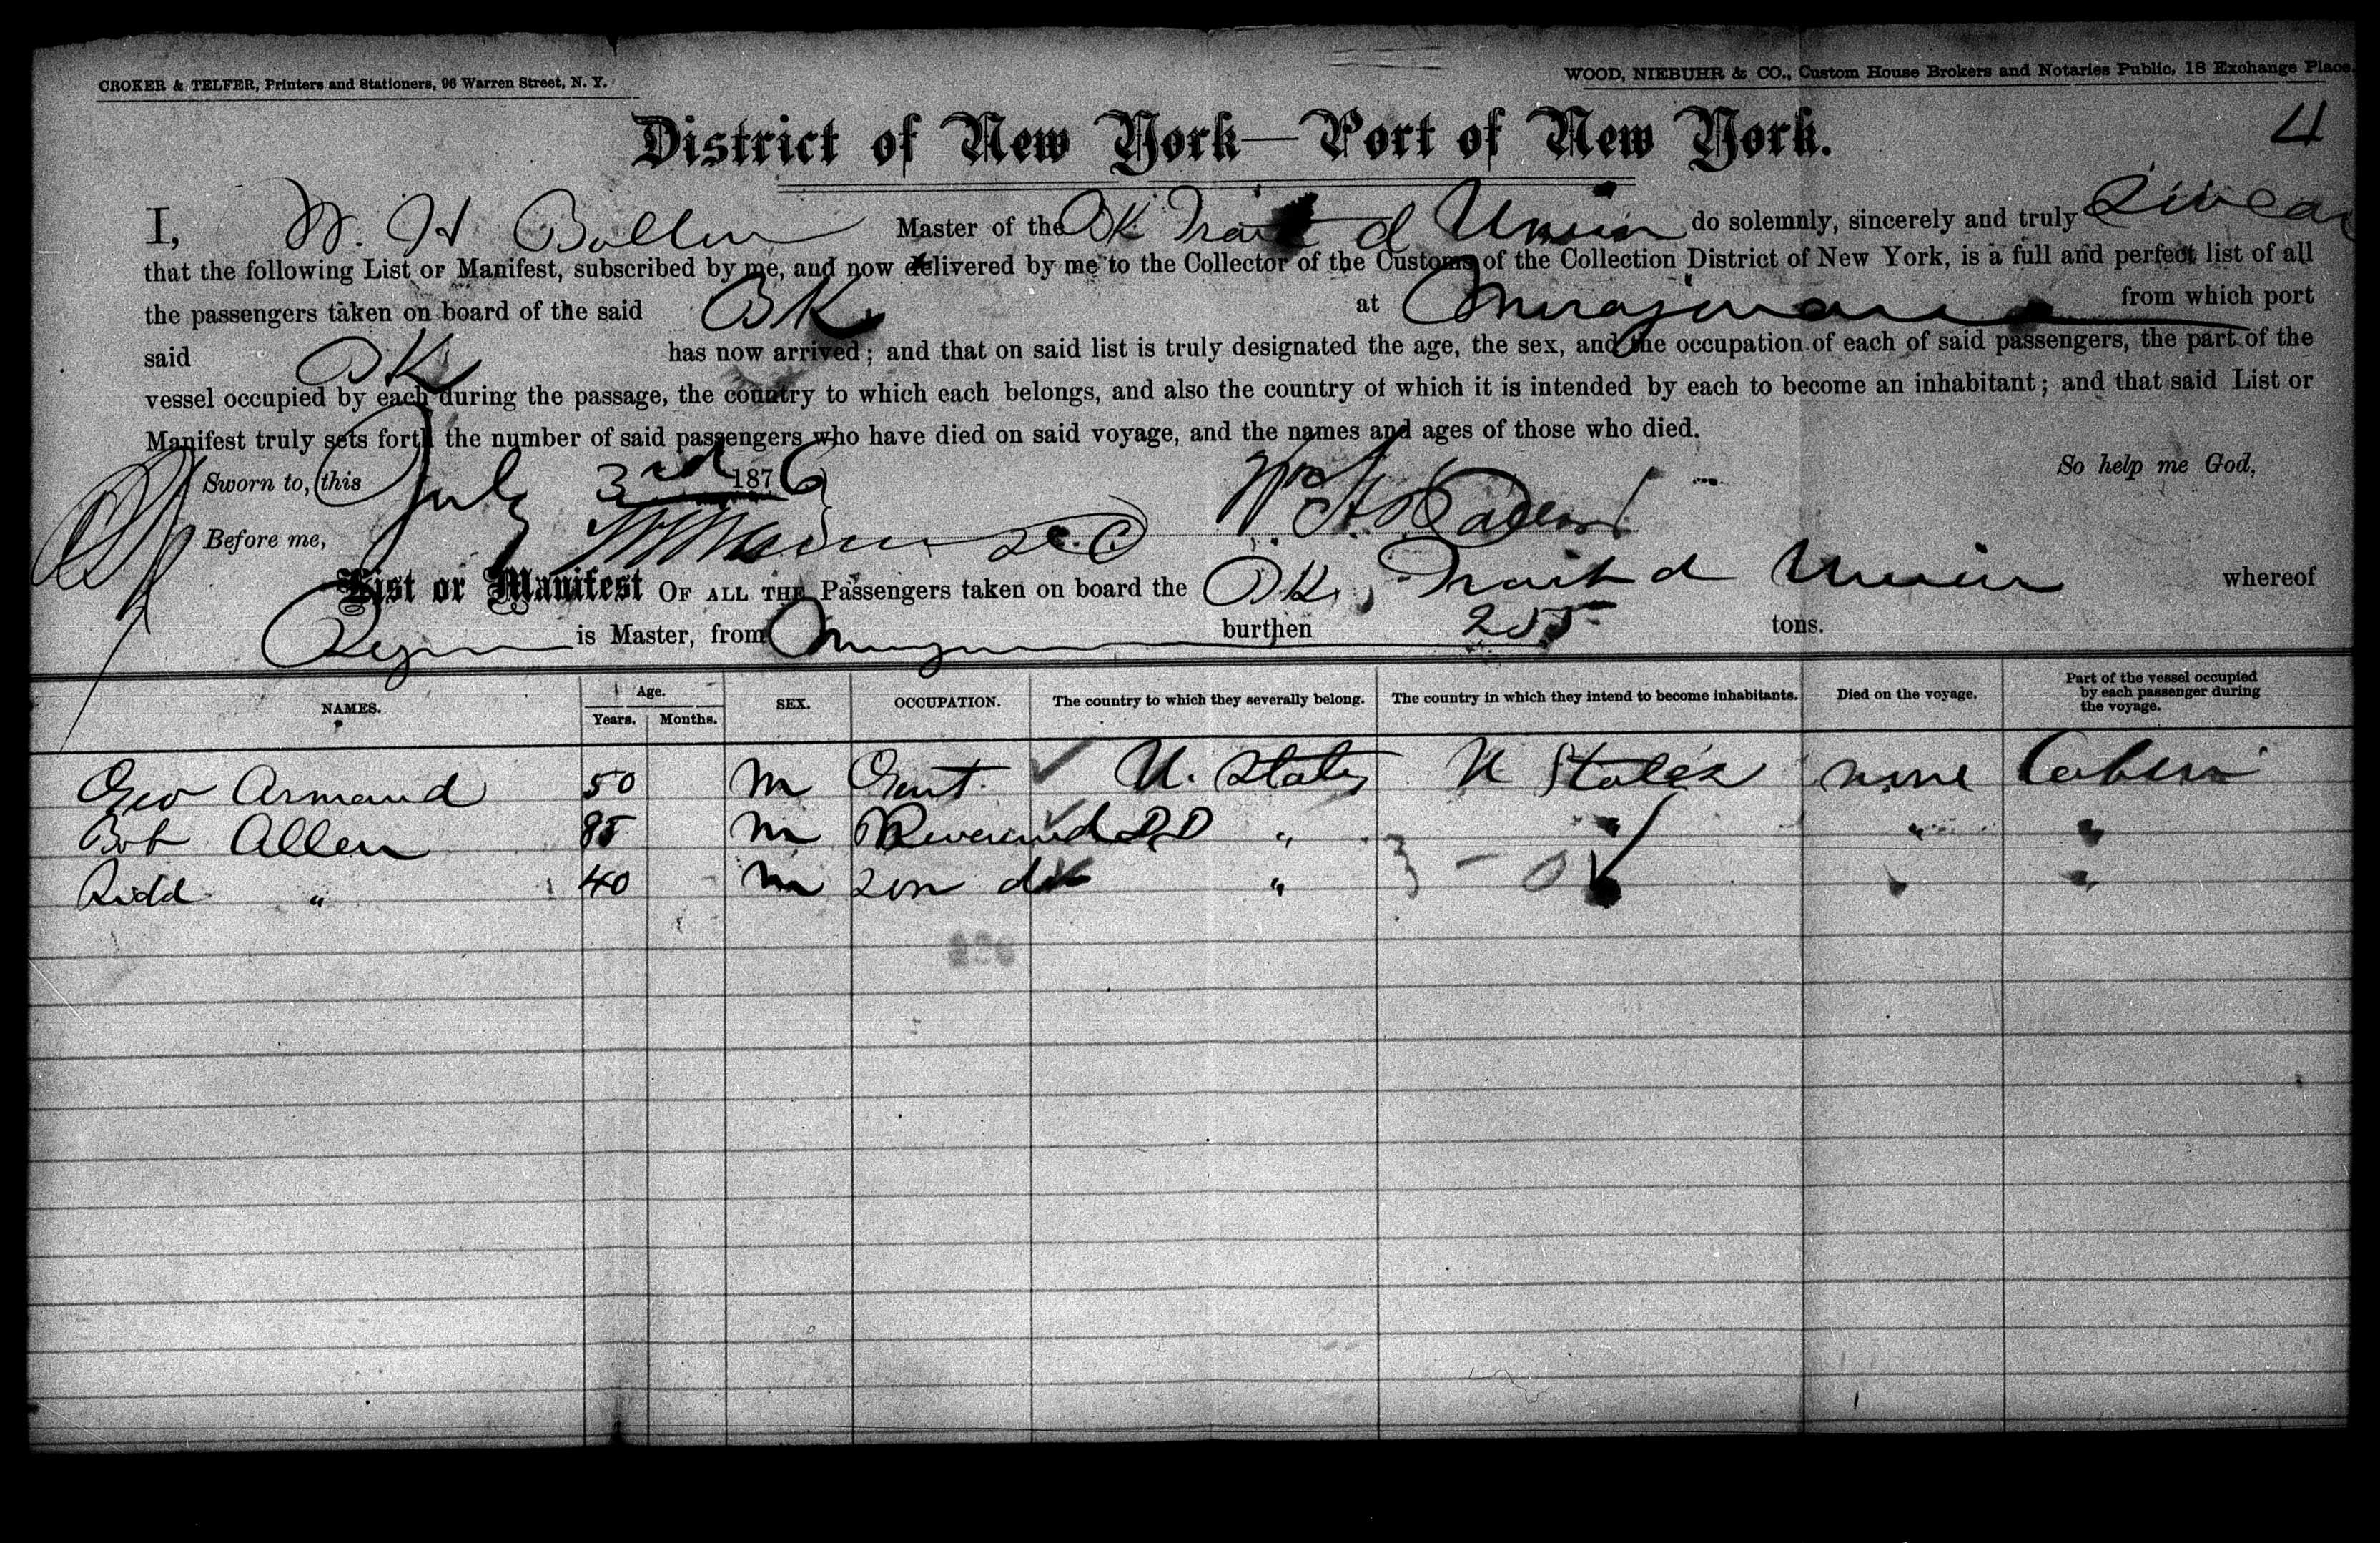 CROKER & TELFER, Printers and Stationers, 96 Warren Street, N. Y.
WOOD, NIEBUHR & CO., Custom House Brokers and Notaries Public, 18 Exchange Place.
4
District of New York—Port of New York.
I, W. H Master of the Union do solemnly, sincerely and truly Swear
that the following List or Manifest, subscribed by me, and now delivered by me to the Collector of the Customs of the Collection District of New York, is a full and perfect list of all
the passengers taken on board of the said BK at from which port
said BK has now arrived; and that on said list is truly designated the age, the sex, and the occupation of each of said passengers, the part of the
vessel occupied by each during the passage, the country to which each belongs, and also the country of which it is intended by each to become an inhabitant; and that said List or
Manifest truly sets forth the number of said passengers who have died on said voyage, and the names and ages of those who died.
So help me God,
Sworn to, this July 3rd 1876
Before me,
List or Manifest OF ALL THE Passengers taken on board the BK, Trait d Union whereof
is Master, from burthen 255 tons.
NAMES. Age. Years. Months. SEX. OCCUPATION. The country to which they severally belong. The country in which they intend to become inhabitants. Died on the voyage. Part of the vessel occupied by each passenger during the voyage.
Geo Armand 50 m Gent. U. States U States none Cabin
Bob Allen 85 m Reverend DD " " " "
" 40 m son do " " " "
3 - 0